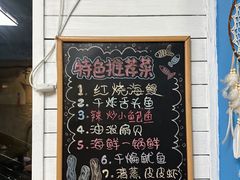 特色推荐菜
1. 红烧海鳗
2. 干炸舌头鱼
3. 辣炒小鲍鱼
4. 油泼扇贝
5. 海鲜一锅鲜
6. 干煸鱿鱼
7. 清蒸皮皮虾